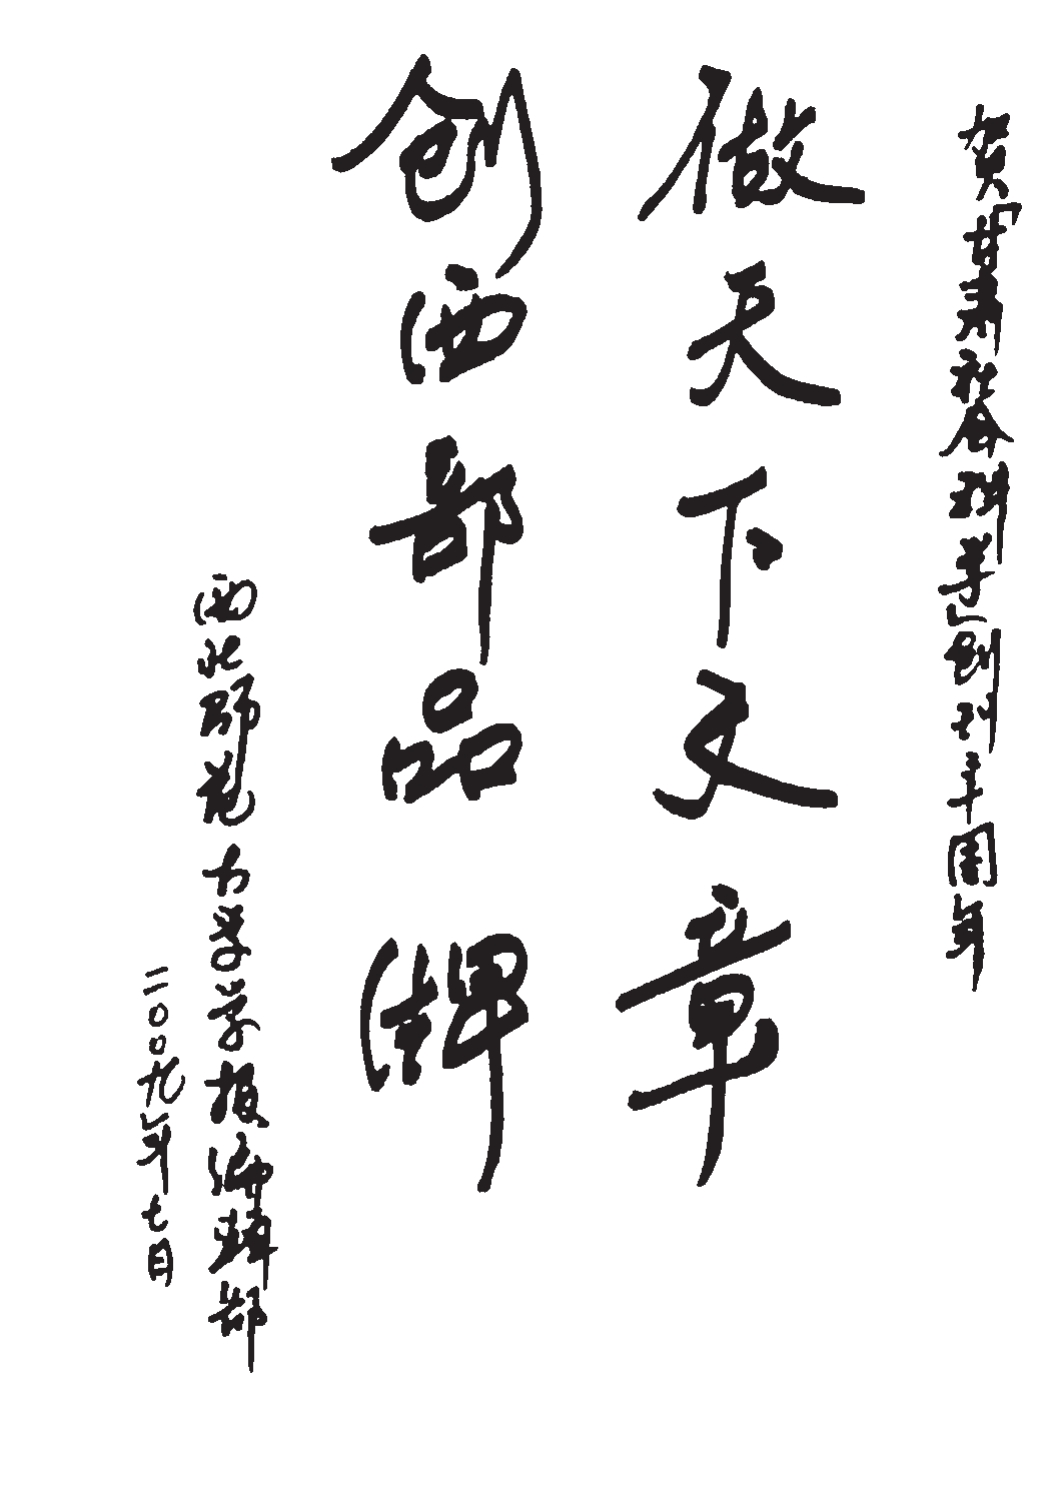 贺「甘肃社会科学」创刊三十周年
做天下文章
创西部品牌
西北师范大学学报编辑部
二〇〇九年七月